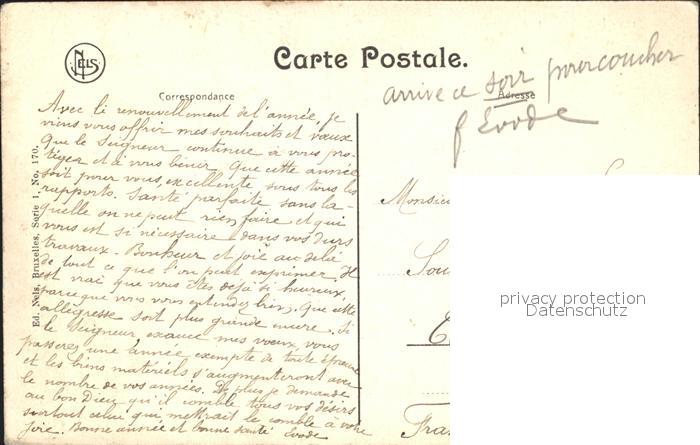 NELS
Carte Postale.
arrive ce soir pour coucher
f Evode
Correspondance
Adresse
Avec le renouvellement de l'année, je
viens vous offrir mes souhaits et vœux
Que le Seigneur continue à vous pro-
téger et à vous bénir. Que cette année
soit pour vous, excellente sous tous les
rapports. Santé parfaite sans la-
quelle on ne peut rien faire et qui
vous est si nécessaire dans vos durs
travaux. Bonheur et joie au delà
de tout ce que l'on peut exprimer. Il
est vrai que vous êtes déjà si heureux,
parce que vous vous entendez bien, que cette
allégresse soit plus grande encore. Si
le Seigneur exauce mes vœux, vous
passerez une année exempte de toute épreuve
et les biens matériels s'augmenteront avec
le nombre de vos années. De plus je demande
au bon Dieu qu'il comble tous vos désirs
surtout celui qui mettrait le comble à votre
joie. Bonne année et bonne santé Evode
Ed. Nels, Bruxelles, Serie 1, No. 170.
Monsieur
Sou
Fran
privacy protection
Datenschutz